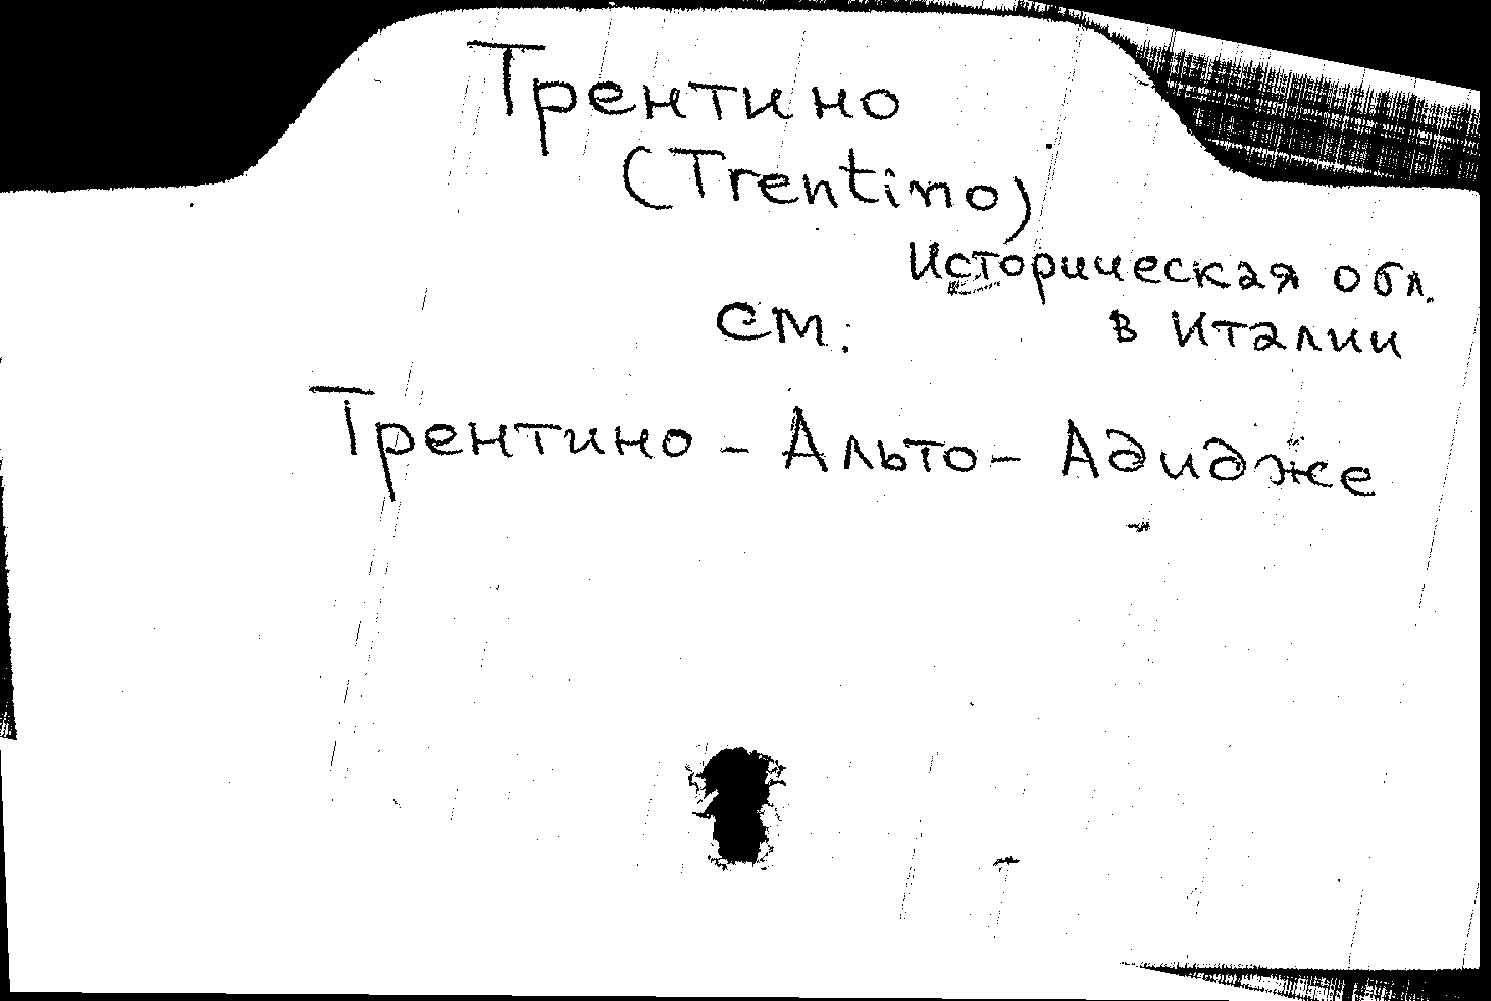 Трентино
(Trentino)
Историческая обл.
в Италии
см.
Трентино - Альто - Адидже